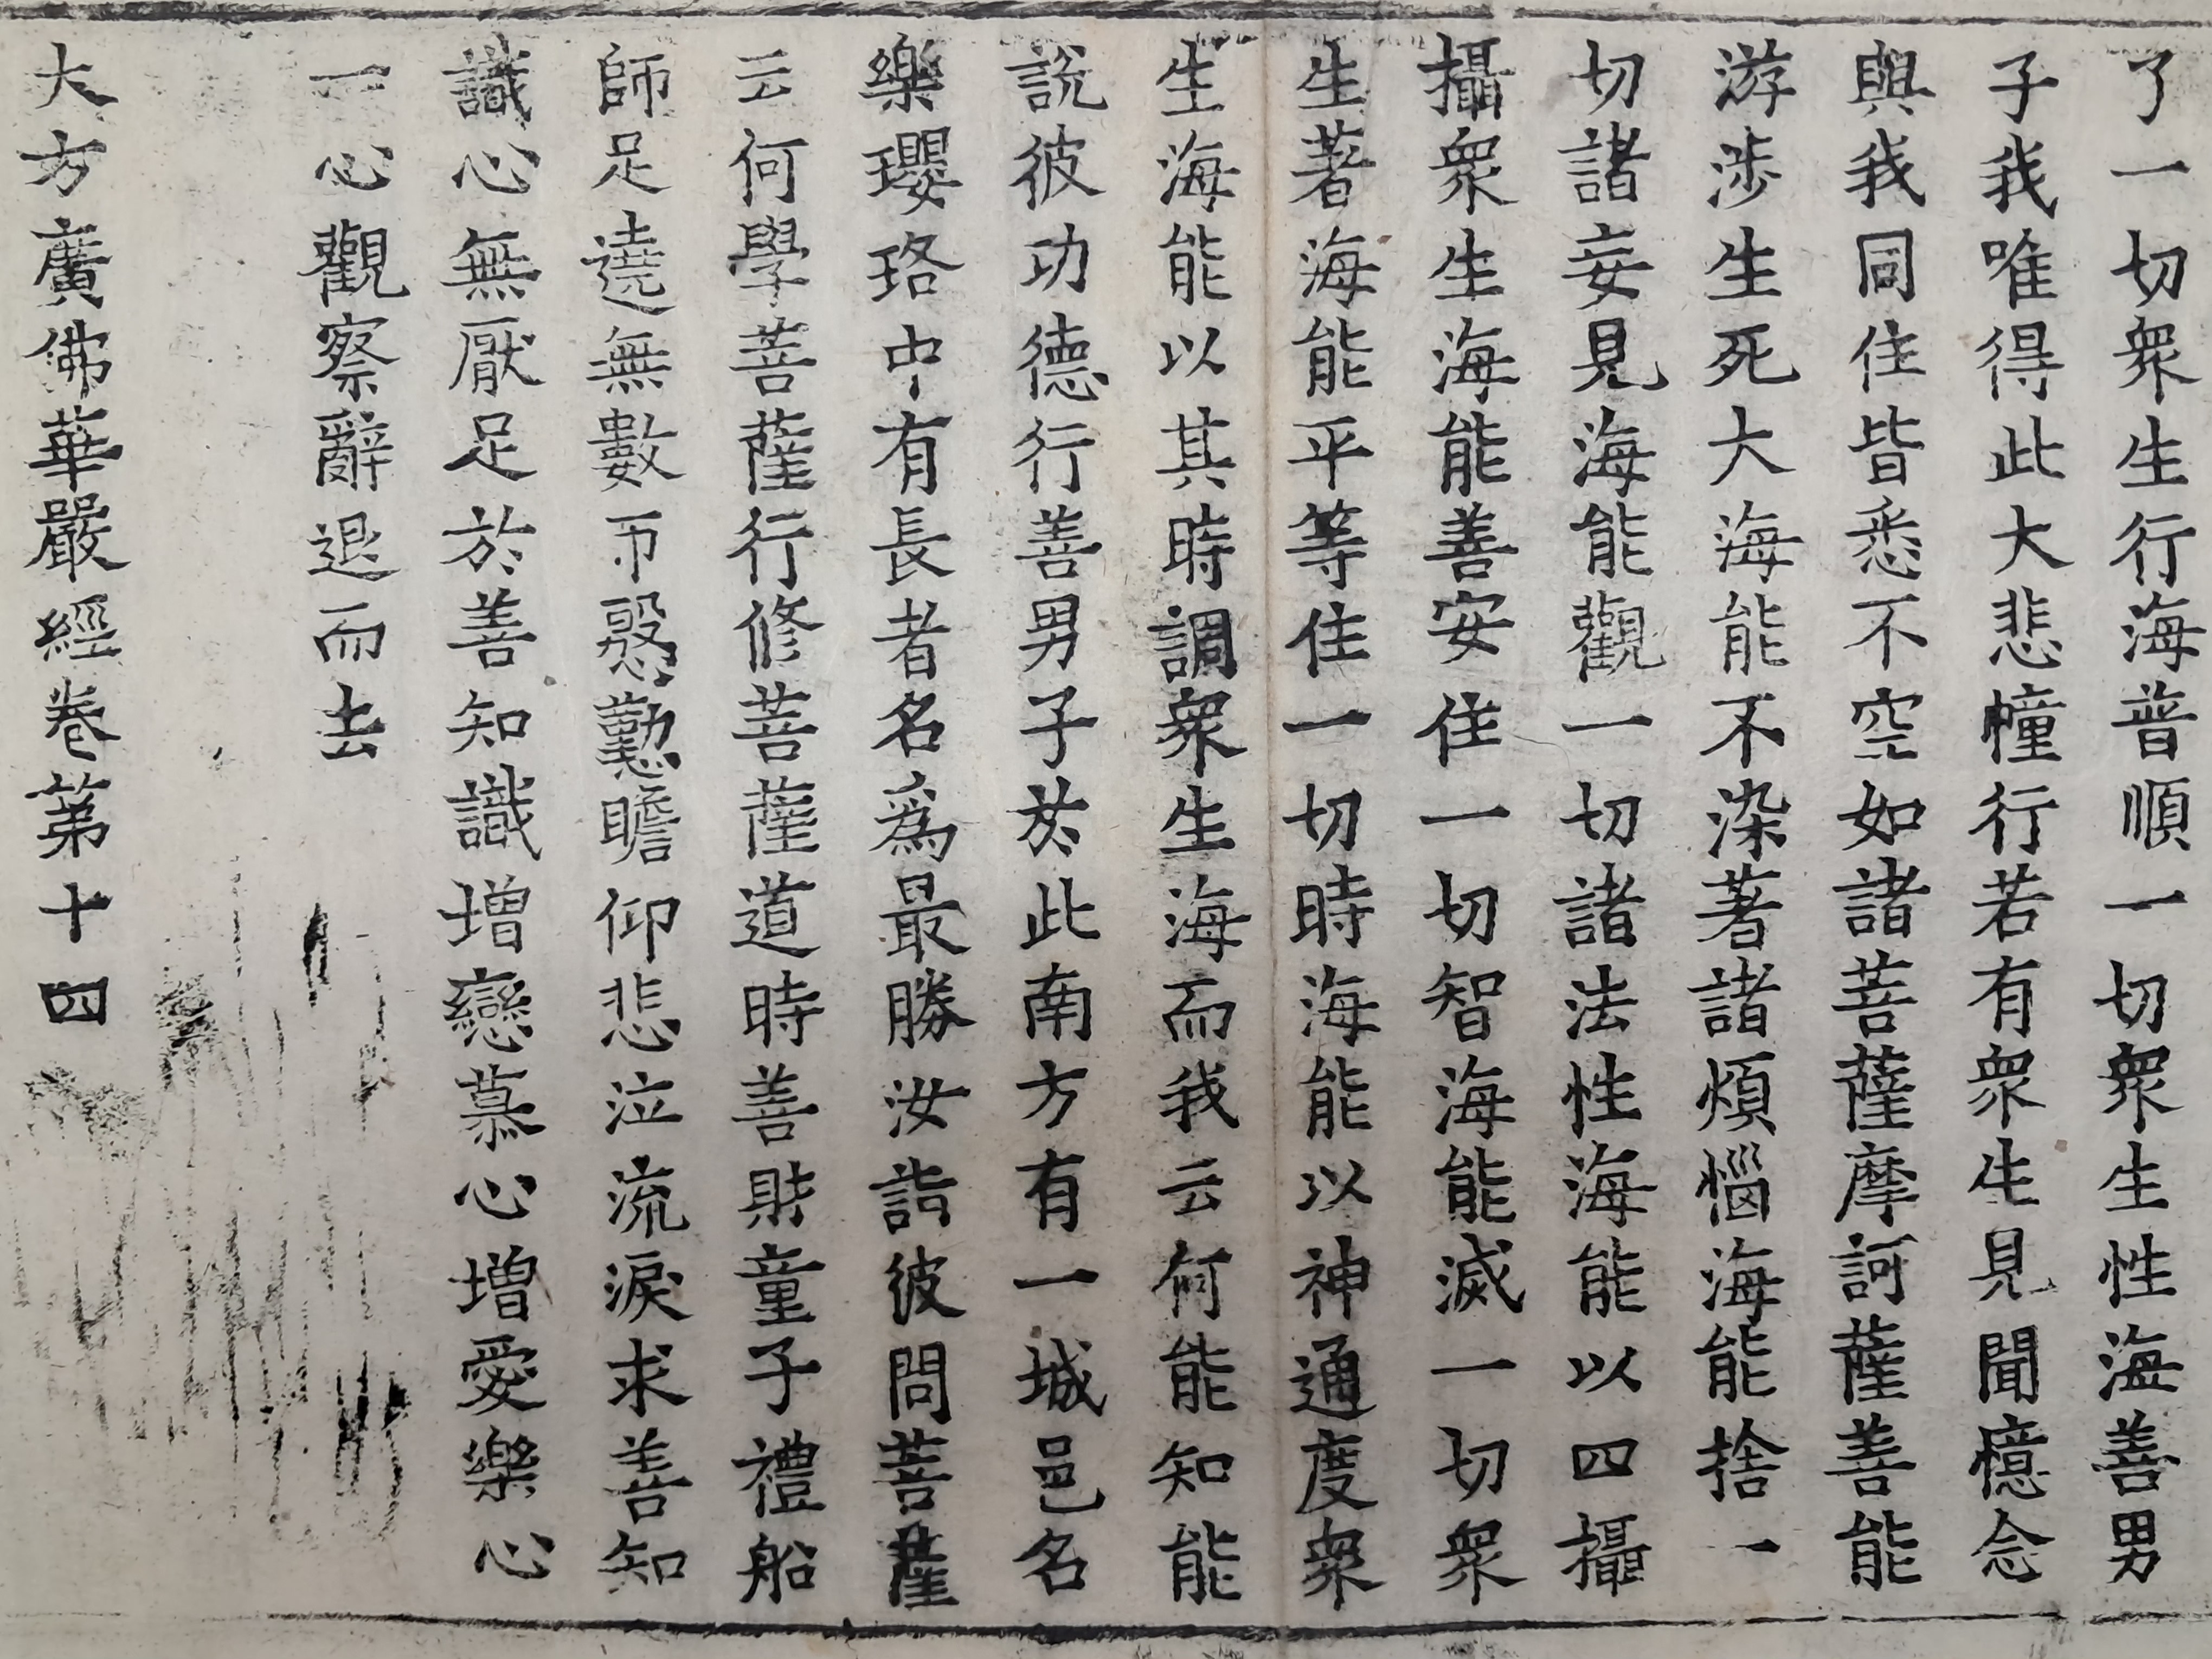 了一切衆生行海普順一切衆生性海善男
子我唯得此大悲幢行若有衆生見聞憶念
與我同住皆悉不空如諸菩薩摩訶薩善能
游涉生死大海能不染著諸煩惱海能捨一
切諸妄見海能觀一切諸法性海能以四攝
攝衆生海能善安住一切智海能滅一切衆
生著海能平等住一切時海能以神通度衆
生海能以其時調衆生海而我云何能知能
說彼功德行善男子於此南方有一城邑名
樂瓔珞中有長者名爲最勝汝詣彼問菩薩
云何學菩薩行修菩薩道時善財童子禮船
師足遶無數帀慇懃瞻仰悲泣流淚求善知
識心無厭足於善知識增戀慕心增愛樂心
一心觀察辭退而去
大方廣佛華嚴經卷第十四